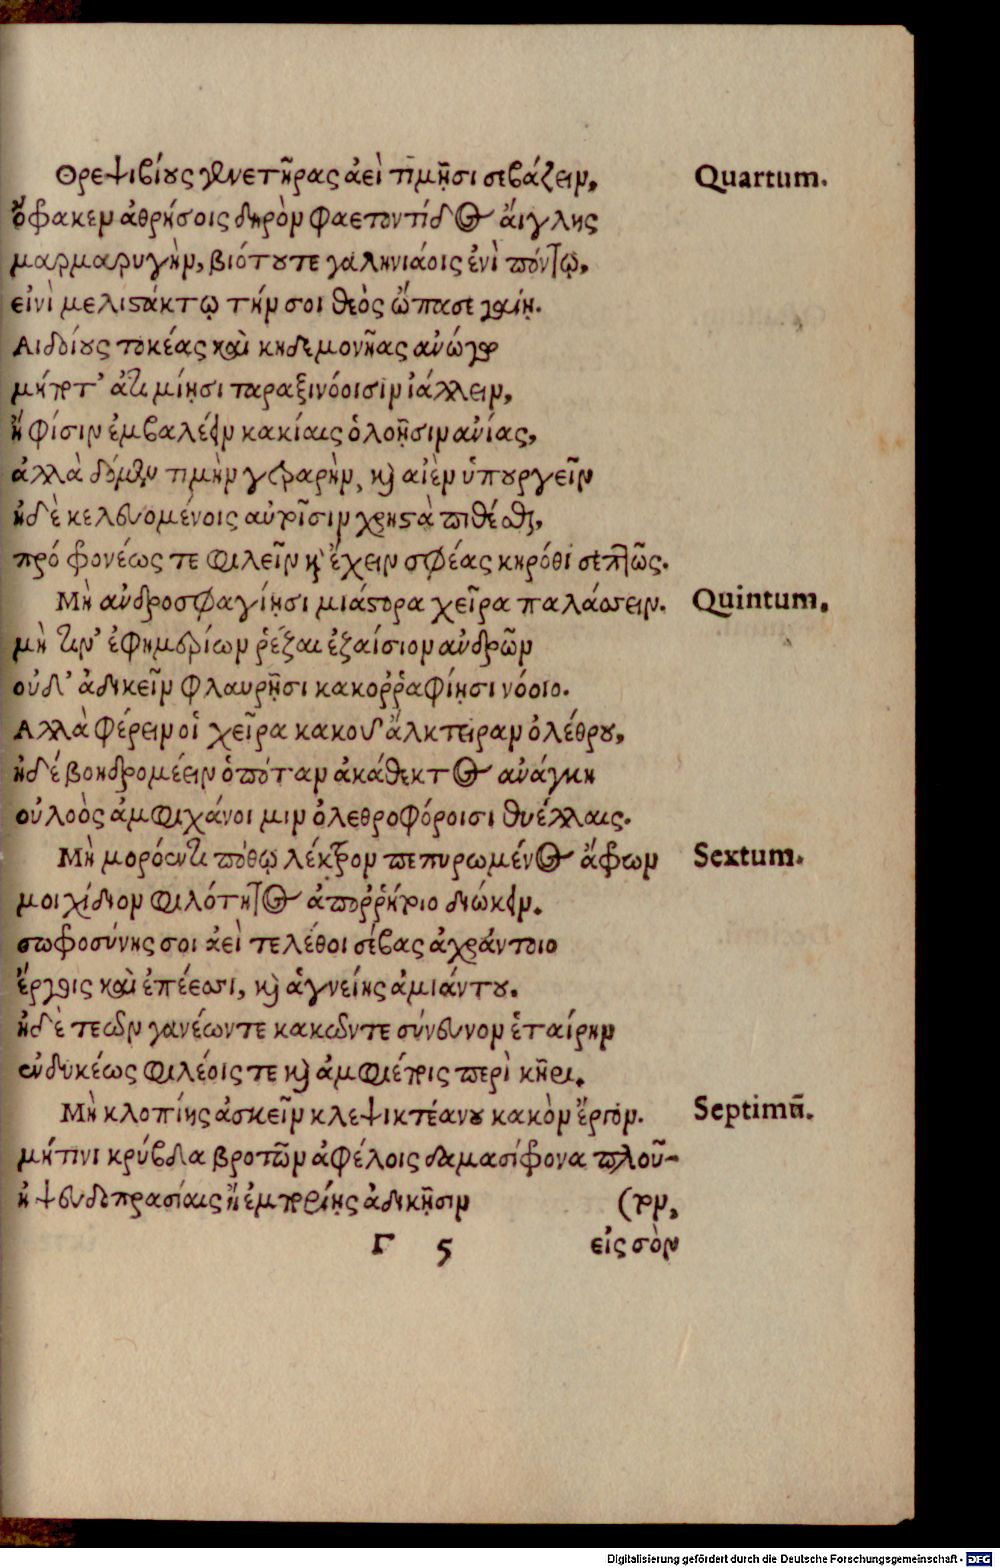 Θρεψιβίους γενετῆρας ἀεὶ τιμῇσι σεβάζειν, Quartum.
ὄφακεν ἀθρήσοις δηρὸν φαετοντίδος ἄιγλης
μαρμαρυγὴν, βιότουτε γαληνιάοις ἐνὶ πόντῳ,
εἰνὶ μελιστάκτῳ τήν σοι θεὸς ὤπασε γαίῃ.
Αιδοίους τοκέας καὶ κηδεμονῆας ανώγω
μήποτ' ἀτιμίῃσι ταραξινόοισιν ἰάλλειν,
ἤ φίσιν ἐμβαλέειν κακίαις ὀλοῇσιν ανίας,
ἀλλὰ δόμεν τιμὴν γεραρὴν, καὶ αἰὲν ὑπουργεῖν
ἠδὲ κελευομένοις αὐτῖσιν χρηστὰ πιθέσθαι,
πρό φονέως τε φιλεῖν καὶ ἔχειν σφέας κηρόθι σεπτῶς.
Μὴ ανδροσφαγίῃσι μιάστορα χεῖρα παλάσσειν. Quintum.
μὴ τιν' ἐφημερίων ῥέζαι ἐξαίσιον ανδρῶν
οὐδ' ἀδικεῖν φλαυρῇσι κακοῤῥαφίῃσι νόοιο.
Αλλὰ φέρειν οἱ χεῖρα κακοῦ ἄλκτειραν ὀλέθρου,
ἠδέ βοηδρομέειν ὁπόταν ἀκάθεκτος ανάγκη
οὐλοὸς ἀμφιχάνοι μιν ὀλεθροφόροισι θυέλλαις.
Μὴ μορόεντι πόθῳ λέκτρον πεπυρωμένος ἄφρων Sextum.
μοιχίδιον φιλότητος ἀποῤῥήτοιο διώκειν.
σωφοσύνης σοι ἀεὶ τελέθοι σέβας ἀχράντοιο
ἔργοις καὶ ἐπέεσσι, καὶ ἁγνείης ἀμιάντου.
ἠδὲ τεῶν γανέωντε κακῶντε σύνευνον ἑταίρην
ενδυκέως φιλέοις τε καὶ ἀμφιέποις περὶ κῆρι.
Μὴ κλοπίης ἀσκεῖν κλεψικτέανου κακὸν ἔργον. Septimũ.
μήτινι κρύβδα βροτῶν ἀφέλοις δαμασίφρονα πλοῦ-
ἠ ψευδοπρασίαις ἢ ἐμπορίης ἀδικῇσιν (τον,
Γ 5 εἰς σὸν
Digitalisierung gefördert durch die Deutsche Forschungsgemeinschaft - DFG